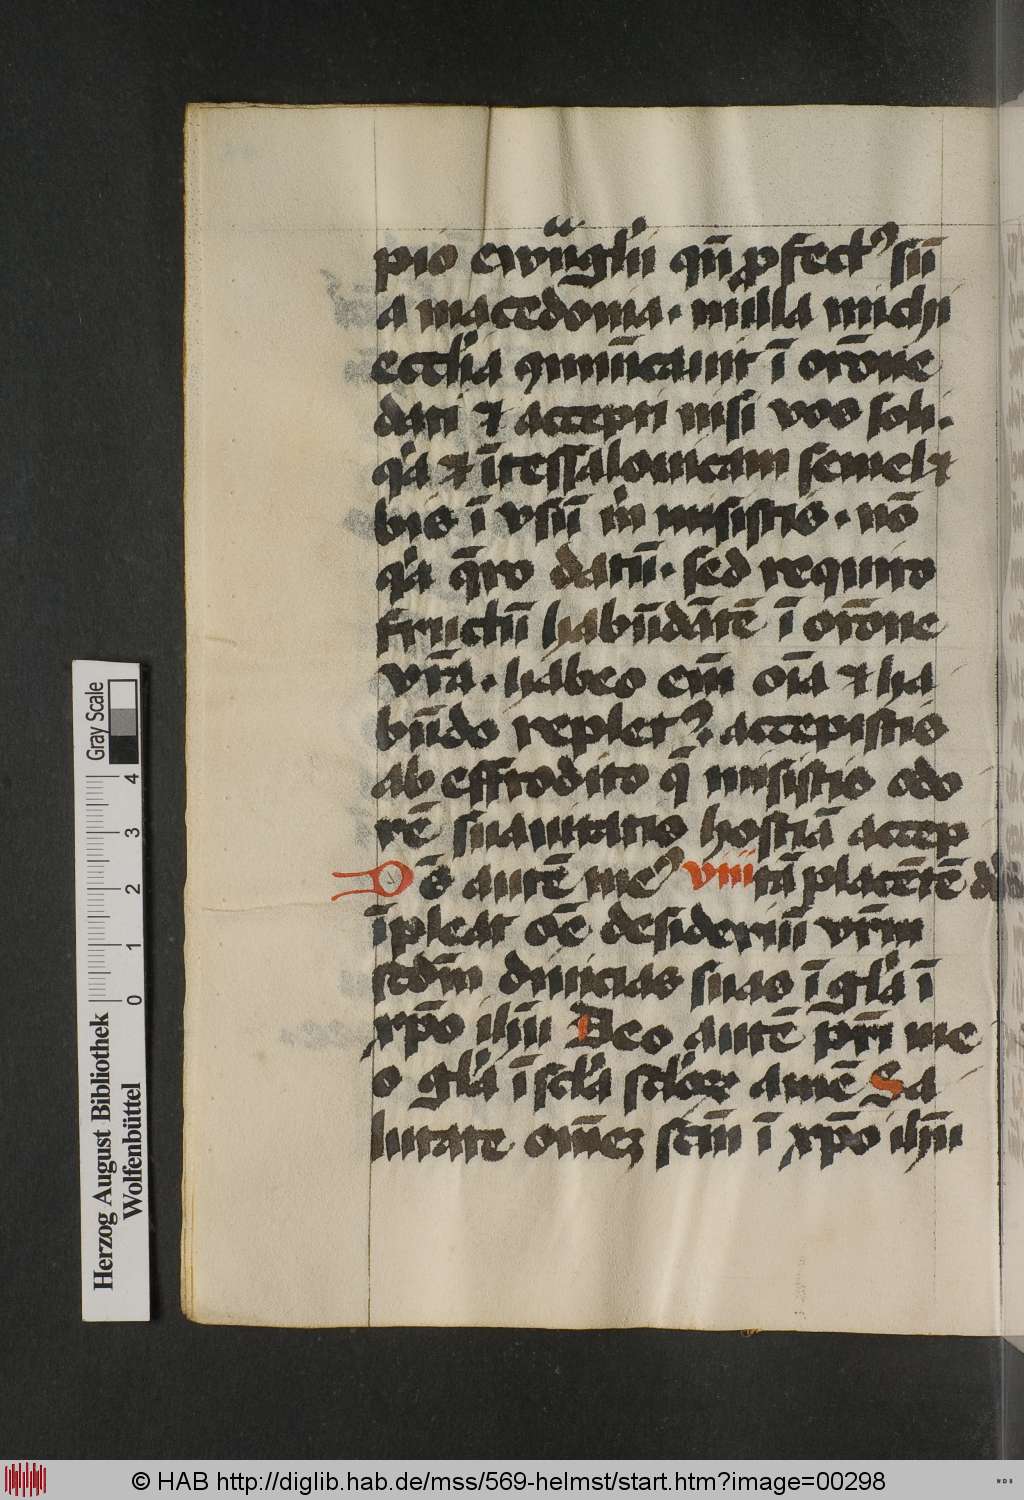 pio ewāgl'ii qn̄ ꝓfect⁹ sū
a macedonia · nulla michi
eccl'ia ꝯmūicauit ī orōne
dati ⁊ accepti nisi vos soli ·
q'a ⁊ ī tessalonicam semel ⁊
bis ī vsū m' misistis · nō
q'a q̄ro datū · sed requiro
fructū habūdātē ī orōne
vr̄a · habeo em̄ oīa ⁊ ha
būdo replet⁹ · accepistis
ab effrodito q̄ misistis odo
rē suauitatis hostiā accep
Dē s autē me⁹ viii tā placētē
īpleat oē desideriū vr̄m
scdm̄ diuicias suas ī gl'a ī
xp̄o ih̄u Deo autē pr̄i me
o gl'a ī scl'a scl'oꝝ amē Sa
lutate om̄eꝫ scm̄ ī xp̄o ih̄u
Gray Scale
4 3 2 1 0
Herzog August Bibliothek
Wolfenbüttel
© HAB http://diglib.hab.de/mss/569-helmst/start.htm?image=00298